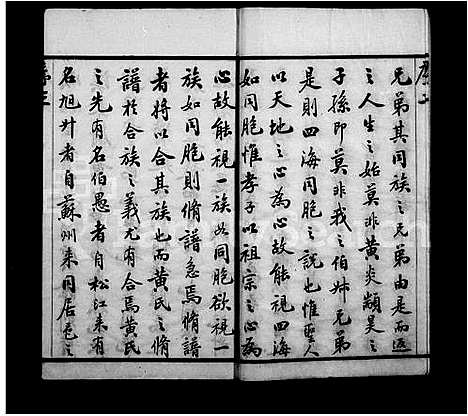 序二
兄弟其同族之兄弟由是而遡
之人生之始莫非黄炎顓昊之
子孫即莫非我之伯姊兄弟
是則四海同胞之説也惟聖人
以天地之心為心故能視四海
如同胞惟孝子以祖宗之心為
心故能視一族如同胞欲視一
族如同胞則脩譜急焉脩譜
者將以合其族也而黄氏之脩
譜於合族之義尤有合焉黄氏
之先有名伯愚者自松江来有
名旭升者自蘇州来同居邑之
序三